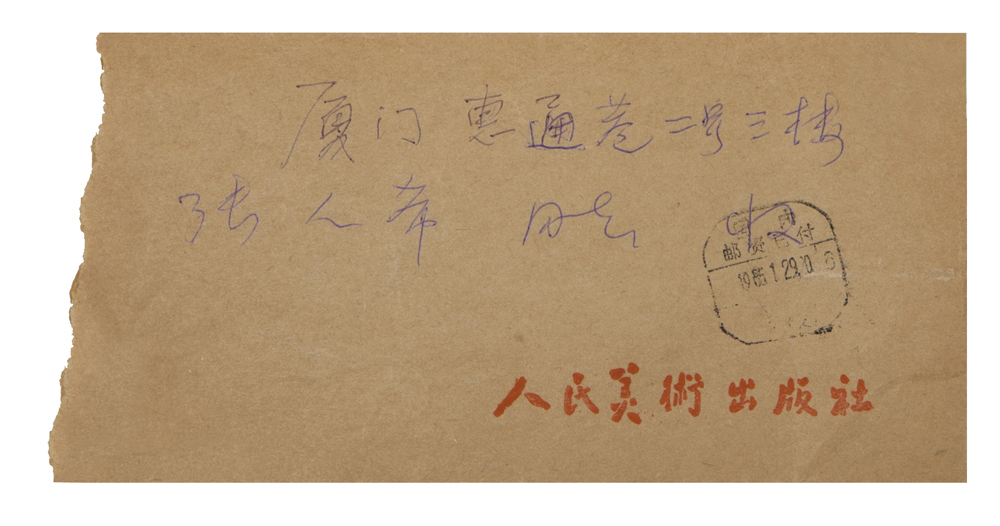 厦门 惠通巷二号三楼
张人希 同志 收
邮资已付
1985 1 29.10
人民美術出版社